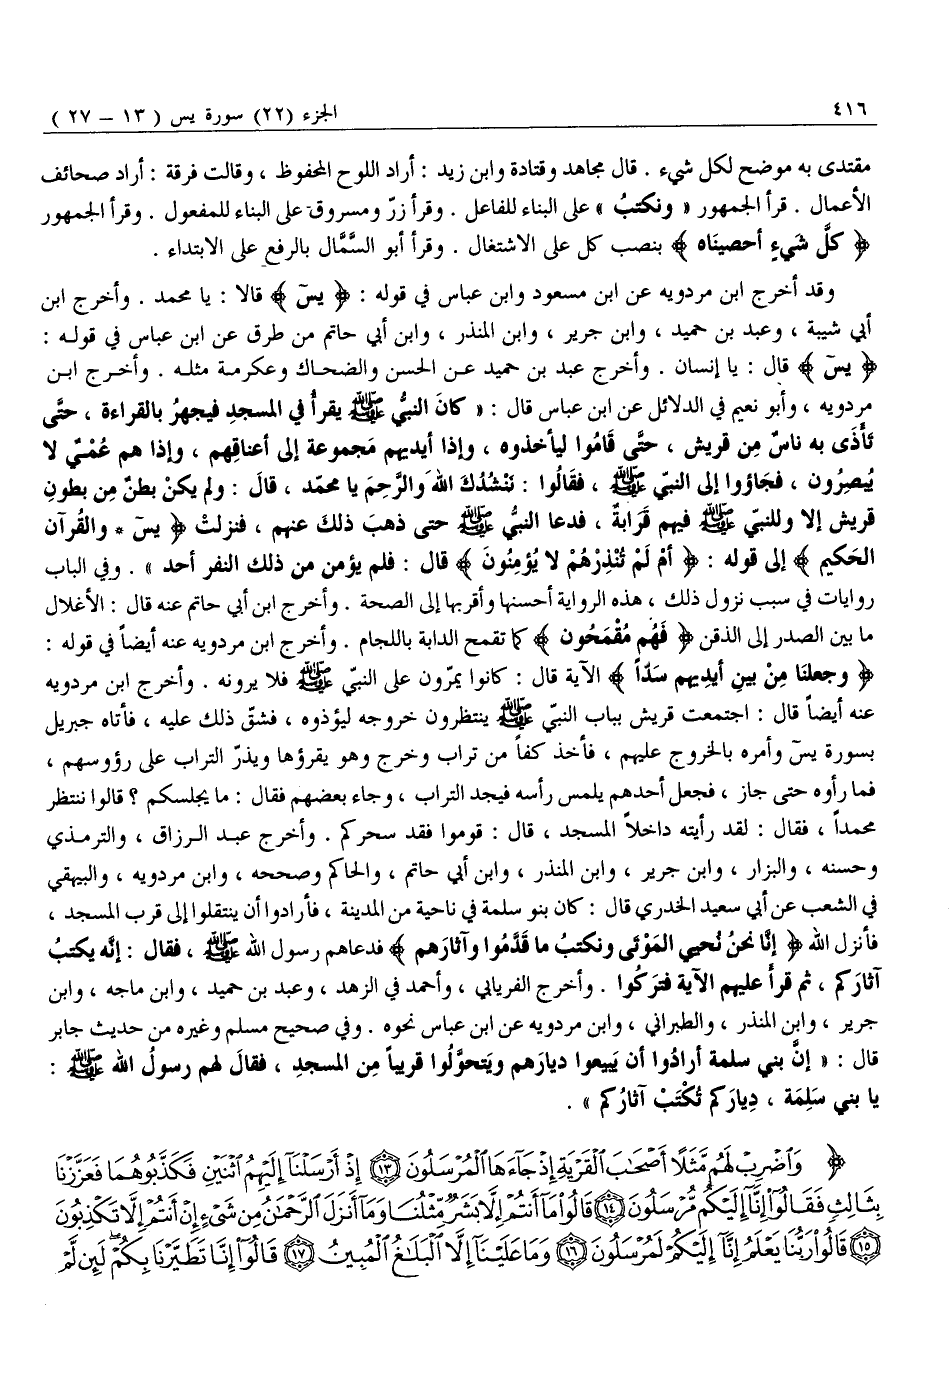 ٤١٦
الجزء (٢٢) سورة يس ( ١٣ – ٢٧ )
مقتدى به موضح لكل شيء . قال مجاهد وقتادة وابن زيد : أراد اللوح المحفوظ ، وقالت فرقة : أراد صحائف
الأعمال . قرأ الجمهور « ونكتبُ » على البناء للفاعل . وقرأ زرّ ومسروق على البناء للمفعول . وقرأ الجمهور
﴿ كلَّ شيءٍ أحصينَاه ﴾ بنصب كل على الاشتغال . وقرأ أبو السَّمَّال بالرفع على الابتداء .
وقد أخرج ابن مردويه عن ابن مسعود وابن عباس في قوله : ﴿ يسٓ ﴾ قالا : يا محمد . وأخرج ابن
أبي شيبة ، وعبد بن حميد ، وابن جرير ، وابن المنذر ، وابن أبي حاتم من طرق عن ابن عباس في قوله :
﴿ يسٓ ﴾ قال : يا إنسان . وأخرج عبد بن حميد عن الحسن والضحاك وعكرمة مثله . وأخرج ابن
مردويه ، وأبو نعيم في الدلائل عن ابن عباس قال : « كانَ النبيُّ ﷺ يقرأُ في المسجدِ فيجهرُ بالقراءة ، حتَّى
تَأَذَى به ناسٌ مِن قريش ، حتَّى قَامُوا ليأخذوه ، وإذا أيديهم مَجموعة إلى أعناقِهم ، وإذا هم عُمْيٌ لا
يُبصِرُون ، فجَاؤوا إلى النبيّ ﷺ ، فقَالُوا : نَنْشُدُكَ اللهَ والرَّحِمَ يا محمّد ، قالَ : ولم يكنْ بطنٌ مِن بطونِ
قريش إلا وللنبيّ ﷺ فيهم قَرَابةٌ ، فدعا النبيُّ ﷺ حتى ذهبَ ذلكَ عنهم ، فنزلتْ ﴿ يسٓ * والقُرآن
الحَكيم ﴾ إلى قوله : ﴿ أمْ لَمْ تُنْذِرْهُمْ لا يُؤمِنُونَ ﴾ قال : فلم يؤمن من ذلك النفر أحد » . وفي الباب
روايات في سبب نزول ذلك ، هذه الرواية أحسنها وأقربها إلى الصحة . وأخرج ابن أبي حاتم عنه قال : الأغلال
ما بين الصدر إلى الذقن ﴿ فَهُم مُقْمَحُون ﴾ كما تقمح الدابة باللجام . وأخرج ابن مردويه عنه أيضاً في قوله :
﴿ وجعلنَا مِنْ بينِ أيدِيهم سَدّاً ﴾ الآية قال : كانوا يمرّون على النبيّ ﷺ فلا يرونه . وأخرج ابن مردويه
عنه أيضاً قال : اجتمعت قريش بباب النبيّ ﷺ ينتظرون خروجه ليؤذوه ، فشقّ ذلك عليه ، فأتاه جبريل
بسورة يسٓ وأمره بالخروج عليهم ، فأخذ كفاً من تراب وخرج وهو يقرؤها ويذرّ التراب على رؤوسهم ،
فما رأوه حتى جاز ، فجعل أحدهم يلمس رأسه فيجد التراب ، وجاء بعضهم فقال : ما يجلسكم ؟ قالوا ننتظر
محمداً ، فقال : لقد رأيته داخلاً المسجد ، قال : قوموا فقد سحركم . وأخرج عبد الرزاق ، والترمذي
وحسنه ، والبزار ، وابن جرير ، وابن المنذر ، وابن أبي حاتم ، والحاكم وصححه ، وابن مردويه ، والبيهقي
في الشعب عن أبي سعيد الخدري قال : كان بنو سلمة في ناحية من المدينة ، فأرادوا أن ينتقلوا إلى قرب المسجد ،
فأنزل الله ﴿ إنَّا نحنُ نُحيي المَوْتَى ونكتبُ ما قَدَّمُوا وآثارَهم ﴾ فدعاهم رسول الله ﷺ ، فقال : إنَّه يكتبُ
آثارَكم ، ثم قرأ عليهم الآية فتَركُوا . وأخرج الفريابي ، وأحمد في الزهد ، وعبد بن حميد ، وابن ماجه ، وابن
جرير ، وابن المنذر ، والطبراني ، وابن مردويه عن ابن عباس نحوه . وفي صحيح مسلم وغيره من حديث جابر
قال : « إنَّ بني سلمة أرادُوا أن يَبيعوا ديارَهم ويَتحوَّلُوا قريباً مِن المسجدِ ، فقالَ لهم رسولُ الله ﷺ :
يا بني سَلِمَة ، دِيارَكم تُكْتَبْ آثارُكم » .
﴿ وَٱضْرِبْ لَهُم مَّثَلًا أَصْحَٰبَ ٱلْقَرْيَةِ إِذْ جَآءَهَا ٱلْمُرْسَلُونَ ۝١٣ إِذْ أَرْسَلْنَآ إِلَيْهِمُ ٱثْنَيْنِ فَكَذَّبُوهُمَا فَعَزَّزْنَا
بِثَالِثٍ فَقَالُوٓا۟ إِنَّآ إِلَيْكُم مُّرْسَلُونَ ۝١٤ قَالُوا۟ مَآ أَنتُمْ إِلَّا بَشَرٌ مِّثْلُنَا وَمَآ أَنزَلَ ٱلرَّحْمَٰنُ مِن شَىْءٍ إِنْ أَنتُمْ إِلَّا تَكْذِبُونَ
۝١٥ قَالُوا۟ رَبُّنَا يَعْلَمُ إِنَّآ إِلَيْكُمْ لَمُرْسَلُونَ ۝١٦ وَمَا عَلَيْنَآ إِلَّا ٱلْبَلَٰغُ ٱلْمُبِينُ ۝١٧ قَالُوٓا۟ إِنَّا تَطَيَّرْنَا بِكُمْ لَئِن لَّمْ